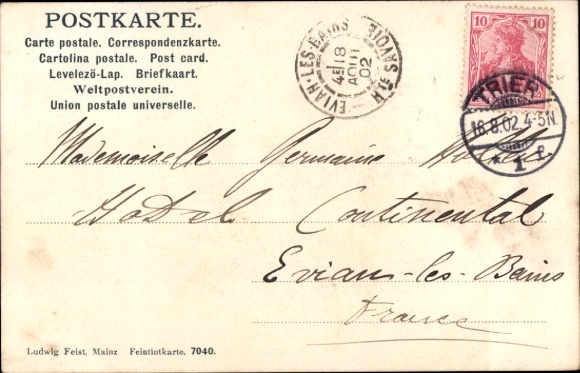 POSTKARTE.
Carte postale. Correspondenzkarte.
Cartolina postale. Post card.
Levelezö-Lap. Briefkaart.
Weltpostverein.
Union postale universelle.
EVIAN-LES-BAINS HTE SAVOIE
18
AOUT
02
10 10
TRIER
16.8.02.4-5N.
* 1 f.
Mademoiselle Germaine
Hotel Continental
Evian-les-Bains
France
Ludwig Feist, Mainz Feintintkarte. 7040.